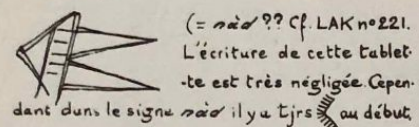 (= nàd ?? Cf. LAK nº 221.
L'écriture de cette tablet-
-te est très négligée. Cepen-
dant dans le signe nàd il y a tjrs au début